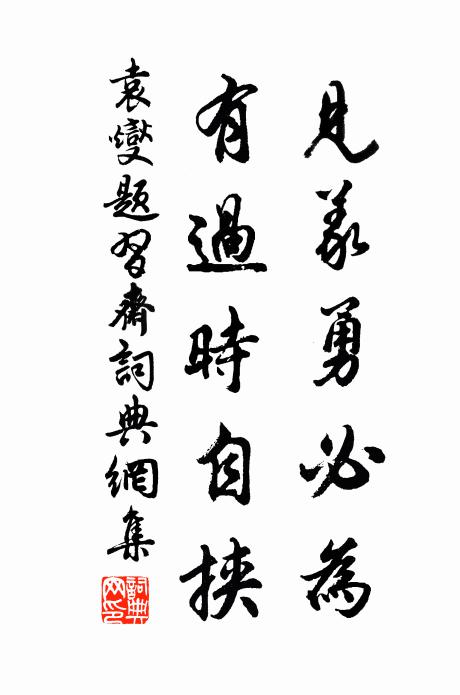 見義勇必為
有過時自挾
袁燮題習齋詞典網集
詞典網印